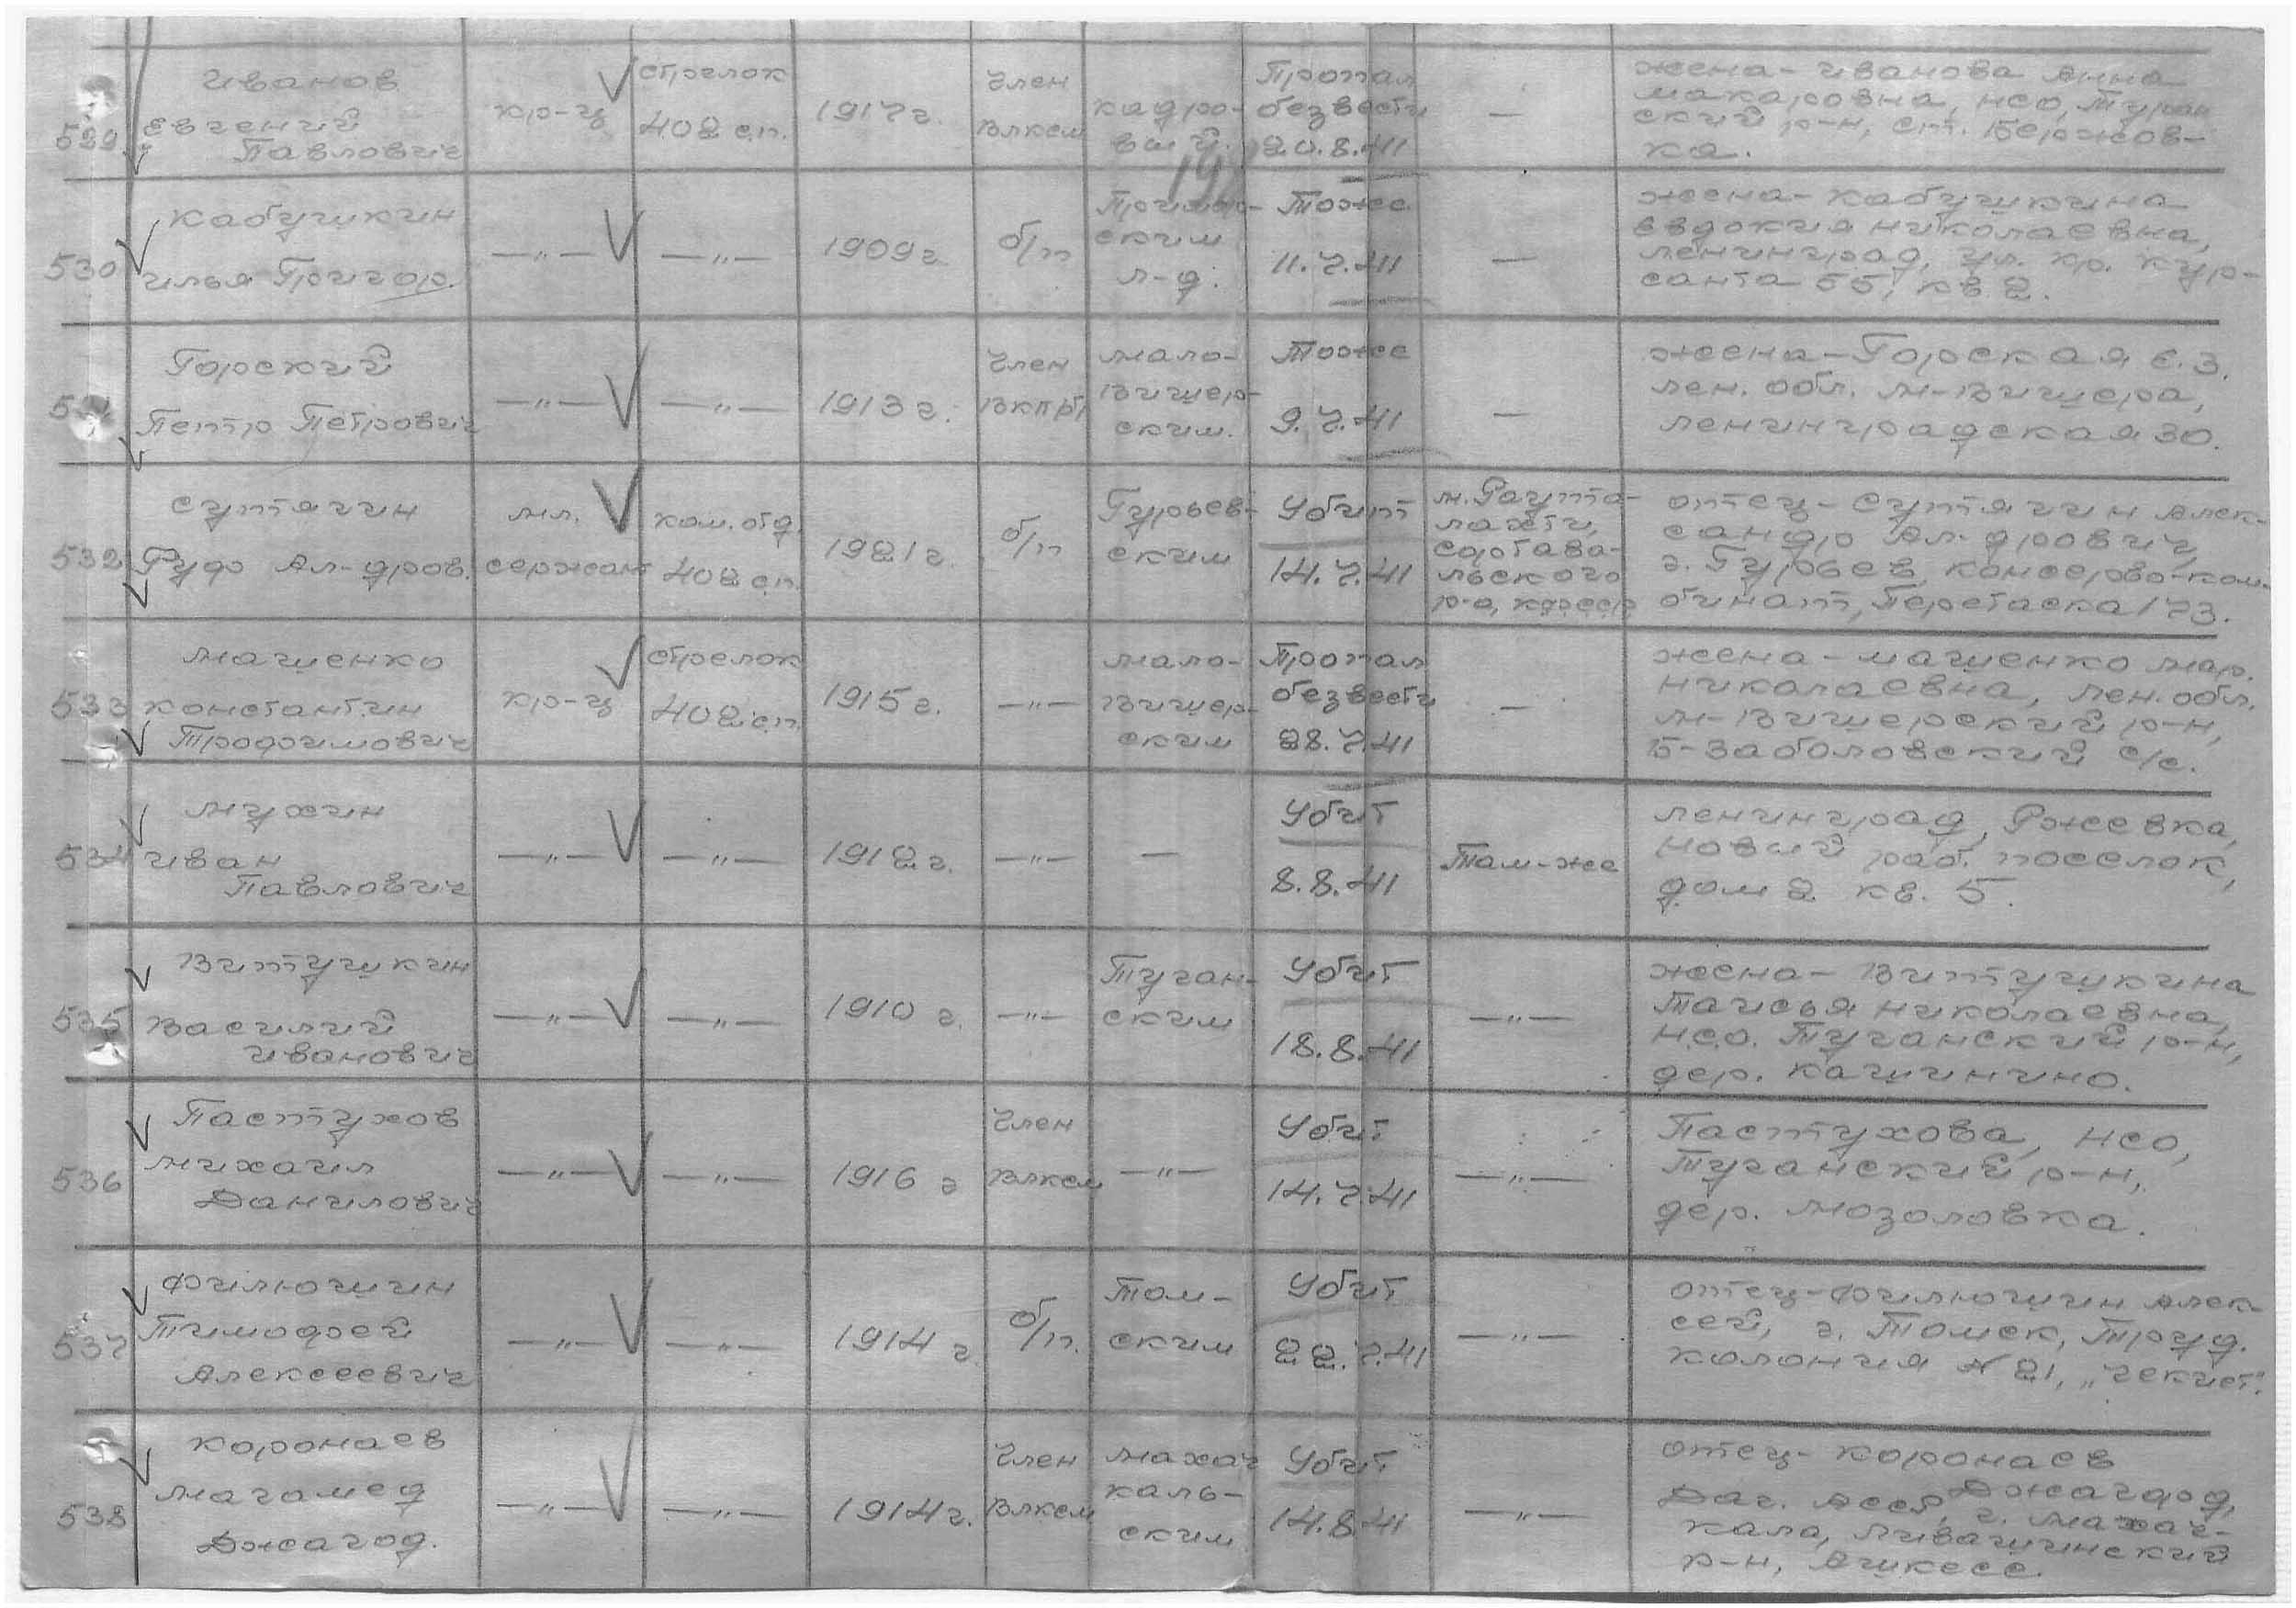 529
Иванов
Евгений
Павлович
кр-ц
стрелок
402 с.п.
1917 г.
Член
ВЛКСМ
кадро-
вый.
Пропал
безвести
20.8.41
—
жена - Иванова Анна
Макаровна, НСО, Туган
ский р-н, ст.
ка.
530
Кабушкин
Илья Григор.
—„—
—„—
1909 г.
б/п
Примор-
ским
л-д.
Тоже
11.7.41
—
жена - Кабушкина
Евдокия Николаевна,
Ленинград, ул. кр. кур-
санта 55, кв 2.
Горский
Петр Петрович
—„—
—„—
1913 г.
Член
ВКП(б)
Мало-
Вишер-
ским.
Тоже
9.7.41
—
жена - Горская Е.З.
Лен. обл. М-Вишера,
Ленинградская 30.
532
Сутягин
Руф Ал-дров.
мл.
сержант
ком. отд.
402 с.п.
1921 г.
б/п
Гурьев-
ским
Убит
14.7.41
м. Раута-
лахти,
Сортава-
льского
р-а, КФССР
отец - Сутягин Алек-
сандр Ал-дрович,
г. Гурьев, консерво-ком-
бинат, Перетаска 173.
533
Машенко
Константин
Трофимович
кр-ц
стрелок
402 с.п.
1915 г.
—„—
Мало-
Вишер-
ским
Пропал
безвести
28.7.41
—
жена - Машенко Мар.
Николаевна, Лен. обл.
М-Вишерский р-н,
Б-Заболовский с/с.
534
Мухин
Иван
Павлович
—„—
—„—
1912 г.
—„—
—
Убит
8.8.41
Там-же
Ленинград, Ржевка,
Новый раб. поселок,
дом 2 кв. 5.
535
Витушкин
Василий
Иванович
—„—
—„—
1910 г.
—„—
Туган-
ским
Убит
18.8.41
—„—
жена - Витушкина
Таисья Николаевна,
Н.С.О. Туганский р-н,
дер. Кашинино.
536
Пастухов
Михаил
Данилович
—„—
—„—
1916 г
Член
ВЛКСМ
—„—
Убит
14.7.41
—„—
Пастухова, НСО,
Туганский р-н,
дер. Мозоловка.
537
Филюшин
Тимофей
Алексеевич
—„—
—„—
1914 г.
б/п.
Том-
ским
Убит
22.7.41
—„—
отец - Филюшин Алек-
сей, г. Томск, Труд.
колония № 21, „Чекист".
538
Коронаев
Магамед
Джагод.
—„—
—„—
1914 г.
Член
ВЛКСМ
Махач
каль-
ским
Убит
14.8.41
—„—
отец - Коронаев
Джагдод,
Даг. АССР, г. Махач-
кала, Ливашинский
р-н,